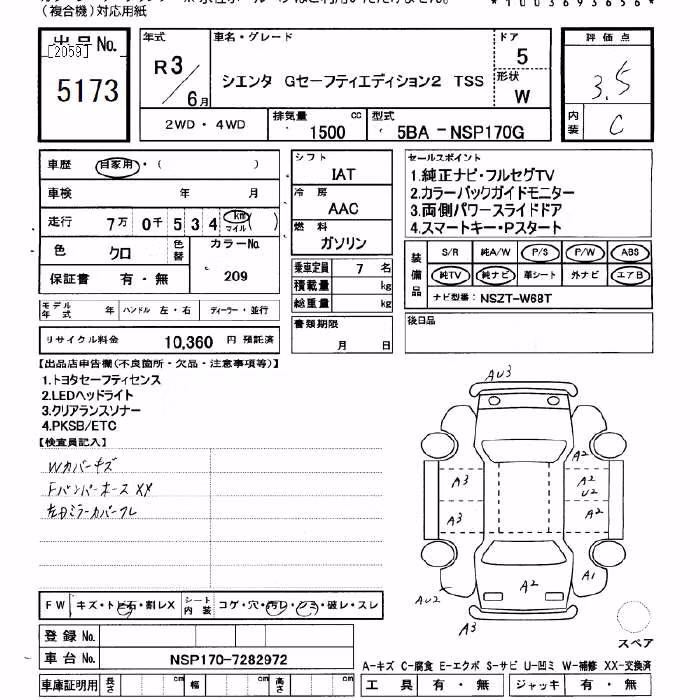 (複合機)対応用紙
*1003693656*
出品No.
[2059]
5173
年式
R3/6月
車名・グレード
シエンタ Gセーフティエディション2 TSS
ドア
5
形状
W
評価点
3.5
内装
C
2WD・4WD
排気量
1500 cc
型式
5BA-NSP170G
車歴 自家用・( )
車検 年 月
走行 7万0千534 km マイル ( )
色 クロ
色替
カラーNo.
209
保証書 有・無
モデル年式 年
ハンドル 左・右
ディーラー・並行
リサイクル料金 10,360 円 預託済
シフト
IAT
冷房
AAC
燃料
ガソリン
乗車定員 7 名
積載量 kg
総重量 kg
書類期限
月 日
セールスポイント
1.純正ナビ・フルセグTV
2.カラーバックガイドモニター
3.両側パワースライドドア
4.スマートキー・Pスタート
装備品
S/R 純A/W P/S P/W ABS
純TV 純ナビ 革シート 外ナビ エアB
ナビ型番: NSZT-W68T
後日品
【出品店申告欄(不良箇所・欠品・注意事項等)】
1.トヨタセーフティセンス
2.LEDヘッドライト
3.クリアランスソナー
4.PKSB/ETC
【検査員記入】
Wカバーキズ
Fバンパーホース XX
左ドミラーカバーフレ
AU3
A2
A3
A2
U2
A3
A2
A1
A2
AU2
A3
スペア
FW キズ・トビ石・割レX
シート内装 コゲ・穴・汚レ・シミ・破レ・スレ
登録No.
車台No. NSP170-7282972
車庫証明用 長さ cm 幅 cm 高さ cm
A-キズ C-腐食 E-エクボ S-サビ U-凹ミ W-補修 XX-交換済
工具 有・無 ジャッキ 有・無